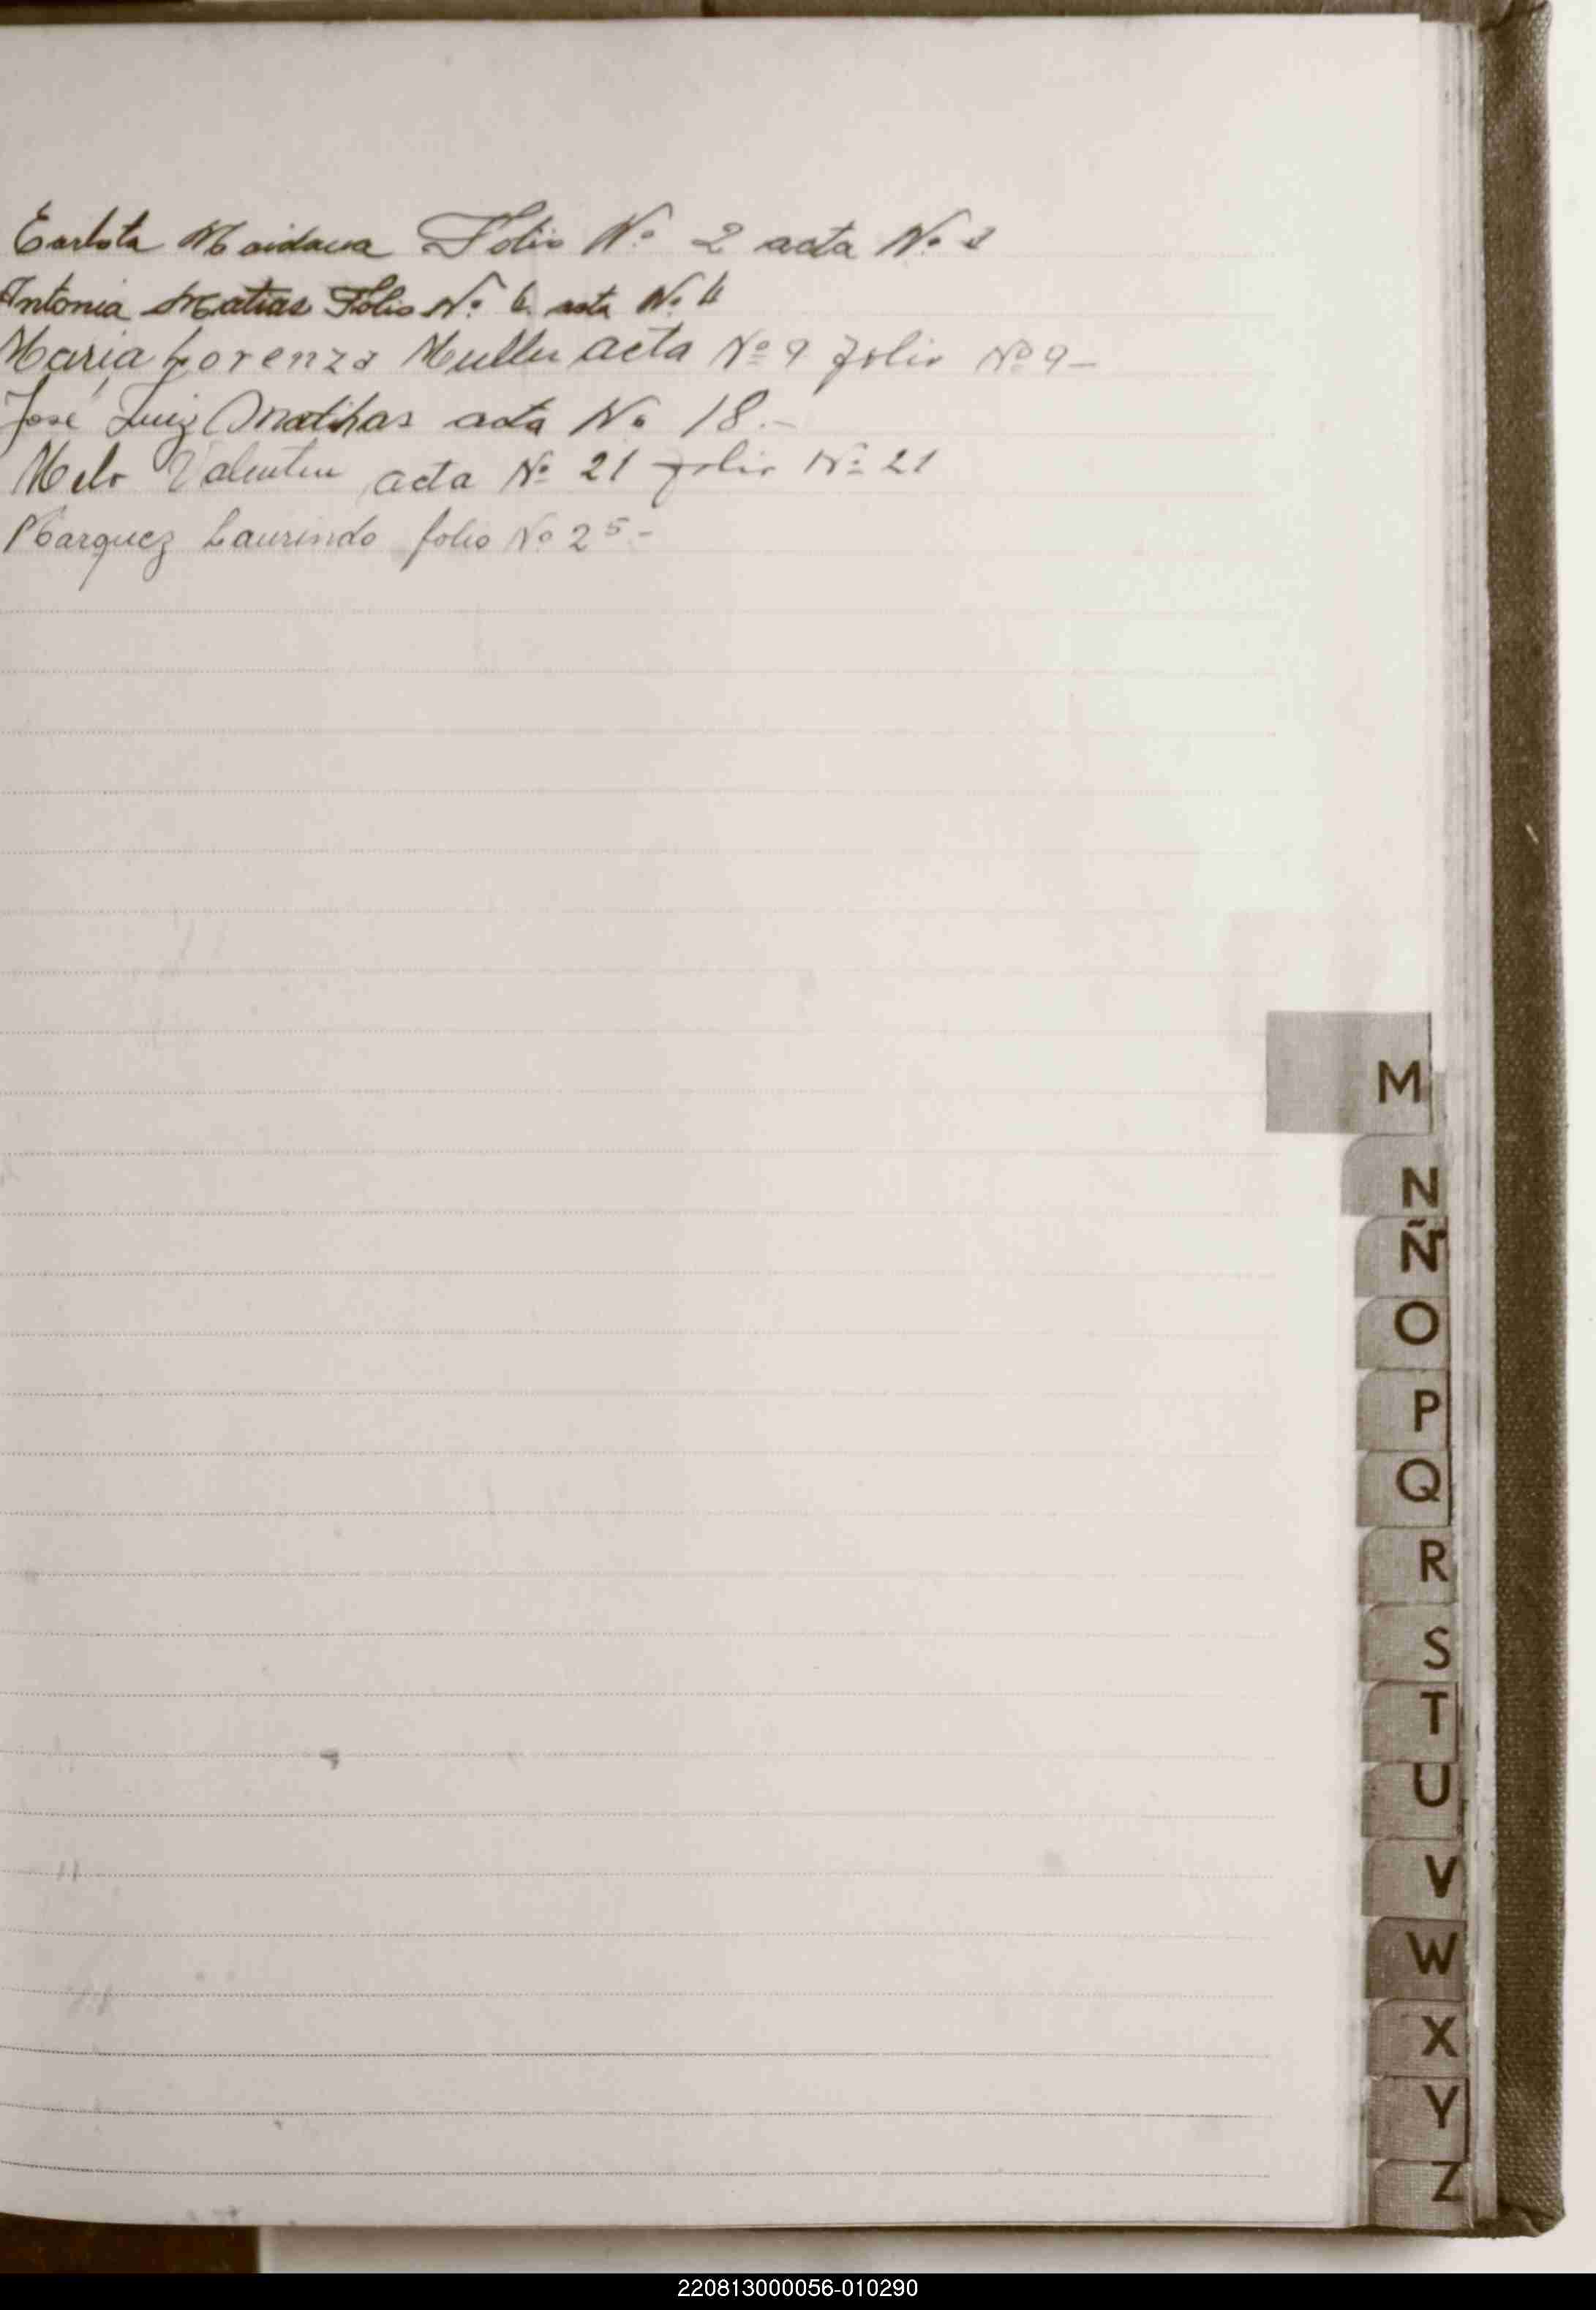 Carlota Maidana Folio No. 2 acta No. 2
Antonia Matias Folio No. 4 acta No. 4
Maria Lorenza Muller acta Nº 9 folio Nº 9-
José Luiz Mathias acta No 18.-
Melo Valentin acta Nº 21 folio Nº 21
Marquez Laurindo folio No 25-
M
N
Ñ
O
P
Q
R
S
T
U
V
W
X
Y
Z
220813000056-010290